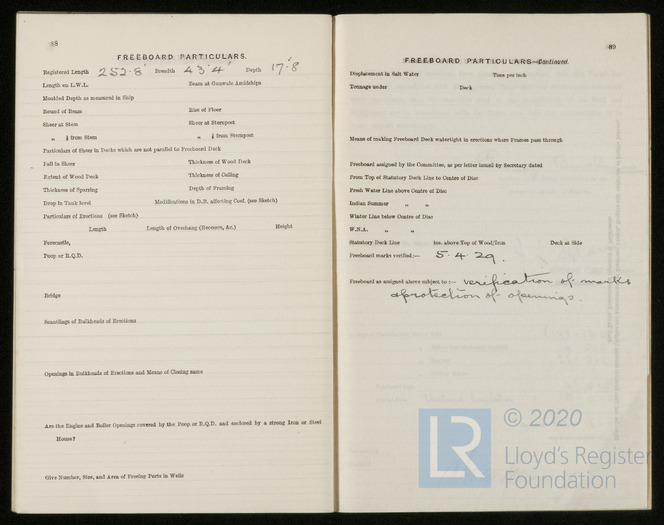 88
FREEBOARD PARTICULARS.
Registered Length 252·8' Breadth 43·4' Depth 17·8'
Length on L.W.L. Beam at Gunwale Amidships
Moulded Depth as measured in Ship
Round of Beam Rise of Floor
Sheer at Stem Sheer at Sternpost
„ ⅛ from Stem „ ⅛ from Sternpost
Particulars of Sheer in Decks which are not parallel to Freeboard Deck
Fall in Sheer Thickness of Wood Deck
Extent of Wood Deck Thickness of Ceiling
Thickness of Sparring Depth of Framing
Drop in Tank level Modifications in D.B. affecting Coef. (see Sketch)
Particulars of Erections (see Sketch)
Length Length of Overhang (Recesses, &c.) Height
Forecastle,
Poop or R.Q.D.
Bridge
Scantlings of Bulkheads of Erections
Openings in Bulkheads of Erections and Means of Closing same
Are the Engine and Boiler Openings covered by the Poop or R.Q.D. and enclosed by a strong Iron or Steel
House?
Give Number, Size, and Area of Freeing Ports in Wells
89
FREEBOARD PARTICULARS—Continued.
Displacement in Salt Water Tons per inch
Tonnage under Deck
Means of making Freeboard Deck watertight in erections where Frames pass through
Freeboard assigned by the Committee, as per letter issued by Secretary dated
From Top of Statutory Deck Line to Centre of Disc
Fresh Water Line above Centre of Disc
Indian Summer „ „
Winter Line below Centre of Disc
W.N.A. „ „
Statutory Deck Line ins. above Top of Wood/Iron Deck at Side
Freeboard marks verified:— 5.4.29.
Freeboard as assigned above subject to:— verification of marks
& protection of openings.
LR © 2020
Lloyd's Register
Foundation